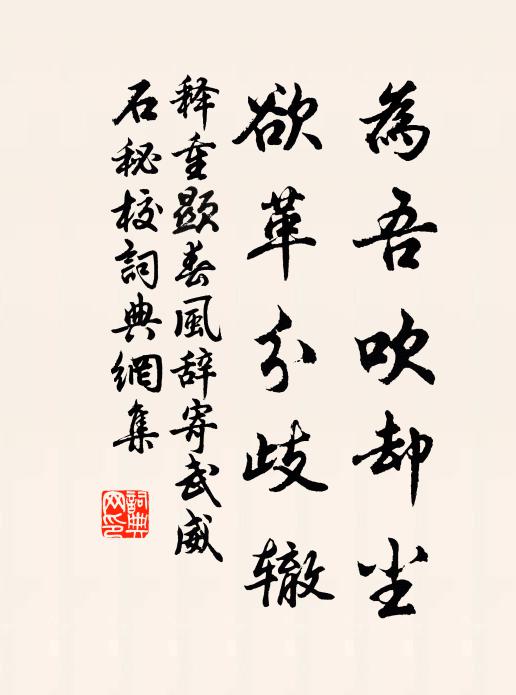 為吾吹却尘
欲革分歧辙
释重显春風辞寄武威
石秘校詞典網集
詞典
网印